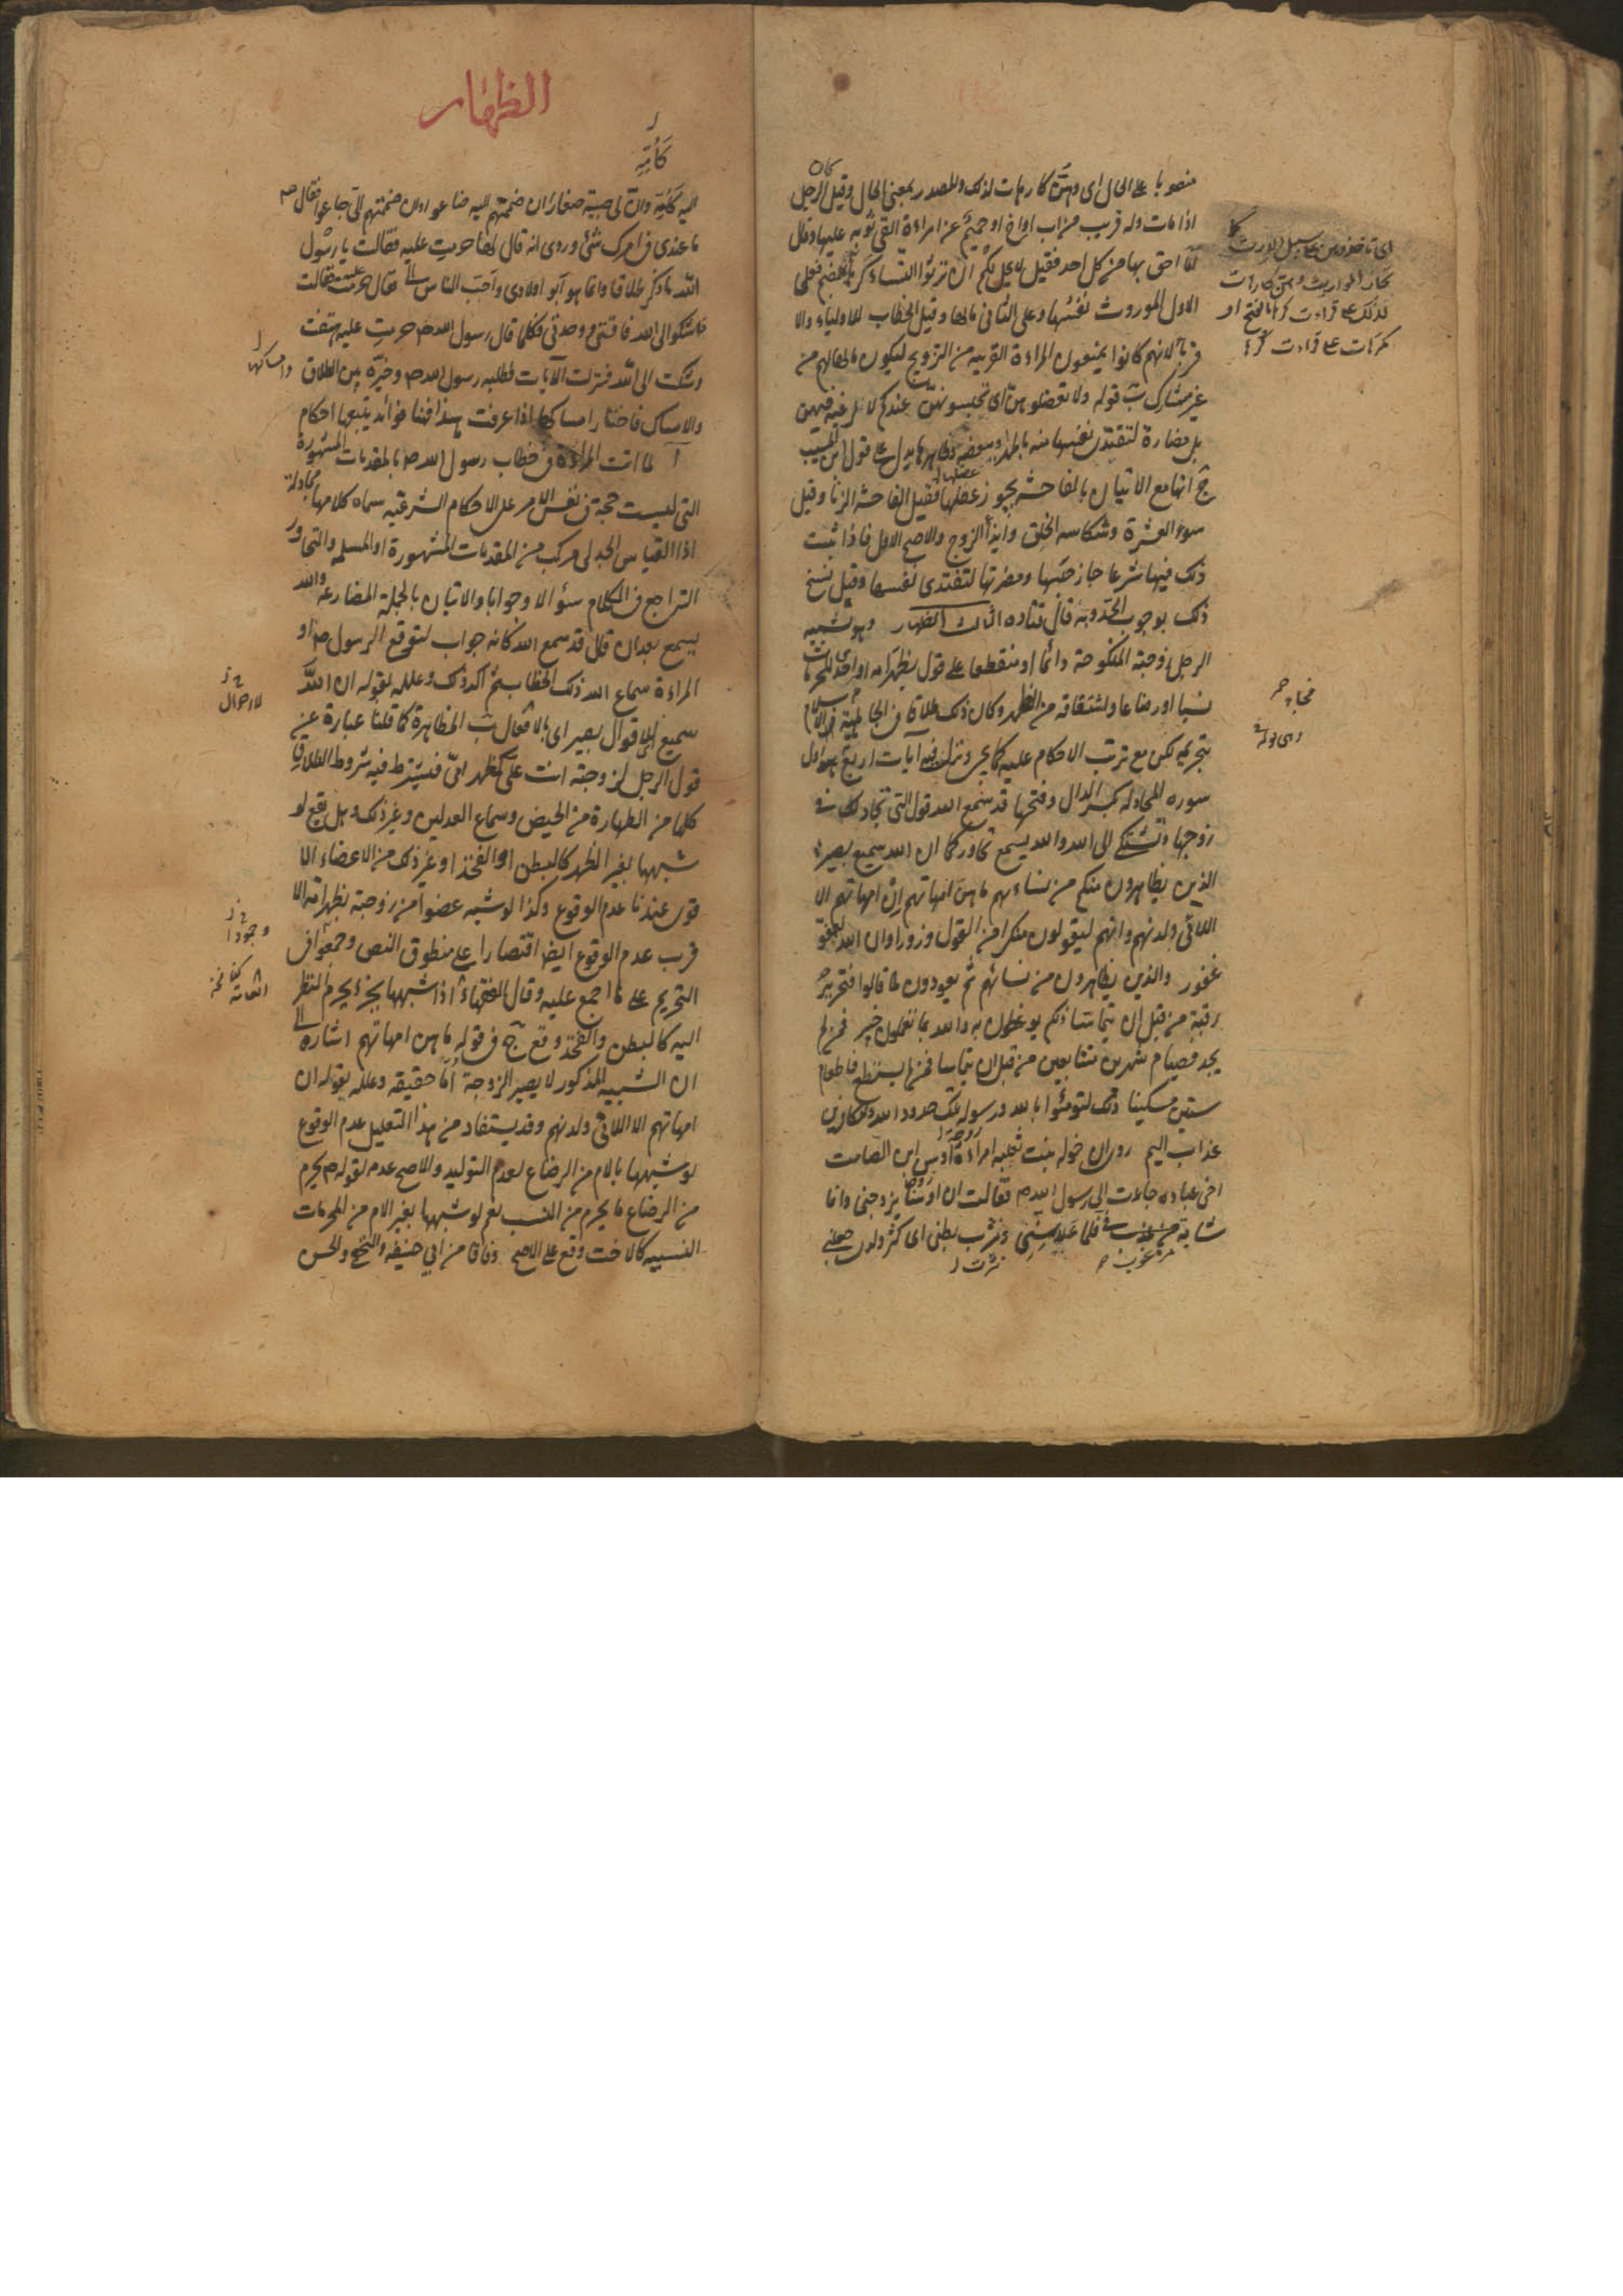 منصوبا على الحال اى وهن كارهات لذلك والمصدر بمعنى الحال وقيل كان الرجل
اذا مات وله قريب من اب او اخ او حميم عن امراءة القى ثوبه عليها وقال
انا احق بها من كل احد فقيل لا يحل لكم ان ترثوا النساء كرها بالضم فعلى
الاول الموروث نفسها وعلى الثانى مالها وقيل الخطاب للاولياء والا
قرباء لانهم كانوا يمنعون المراءة القريبه من التزويج ليكون مالها لهم من
غير مشارك ب قوله ولا تعضلوهن اى تحبسونهن عندكم لا لرغبه فيهن
بل مضارة لتفتدى نفسها منه بالمهر او ببعضه وظاهرها يدل على قول ابن المسيب
ج انها مع الاتيان بالفاحشه يجوز عضلها فقيل الفاحشه الزنا وقيل
سوء العشرة وشكاسه الخلق وايذاء الزوج والاصح الاول فاذا ثبت
ذلك فيها شرعا جاز حبسها ومضرتها لتفتدى نفسها وقيل نسخ
ذلك بوجوب الحد وبه قال قتاده الثالث الظهار وهو تشبيه
الرجل زوجته المنكوحة دائما او منقطعا على قول بظهر امه او احدى المحرمات
نسبا او رضاعا واشتقاقه من الظهر وكان ذلك طلاقا فى الجاهلية
بتحريمه لكن مع ترتب الاحكام عليه كما يجئ ونزل فيه آيات اربع هى اول
سوره المجادله بكسر الدال وفتحها قد سمع الله قول التى تجادلك فى
زوجها وتشتكى الى الله والله يسمع تحاوركما ان الله سميع بصير
الذين يظاهرون منكم من نساءهم ما هن امهاتهم ان امهاتهم الا
اللائى ولدنهم وانهم ليقولون منكرا من القول وزورا وان الله لعفو
غفور والذين يظاهرون من نسائهم ثم يعودون لما قالوا فتحرير
رقبة من قبل ان يتماسا ذلكم توعظون به والله بما تعملون خبير فمن لم
يجد فصيام شهرين متتابعين من قبل ان يتماسا فمن لم يستطع فاطعام
ستين مسكينا ذلك لتومنوا بالله ورسوله وتلك حدود الله وللكافرين
عذاب اليم روى ان خوله بنت ثعلبه امراءة اوس ابن الصامت
اخى عباده جاءت الى رسول الله ص فقالت ان اوسا تزوجنى وانا
شابة مرغوب فى فلما علا سنى ونثرت بطنى اى كثر ولدى جعلنى
اى تاخذوهن على سبيل الارث كما
تحاز المواريث وهن كارهات
لذلك على قراءت كرها بالفتح او
مكرهات على قراءت كرها
الظهار
كأمه
اليه وان لى صبية صغارا ان ضممتهم اليه ضاعوا وان ضممتهم الى جاعوا فقال ص
ما عندى فى امرك شئ وروى انه قال لها حرمت عليه فقالت يا رسول
الله ما ذكر طلاقا وانما هو أبو اولادى وأحب الناس الى فقال حرمت عليه فقالت
اشكوا الى الله فاقتى ووحدتى فكلما قال رسول الله ص حرمت عليه هتفت
وشكت الى الله فنزلت الآيات فطلبه رسول الله ص وخيره بين الطلاق وامساكها
والامساك فاختار امساكها اذا عرفت هذا فهنا فوائد يتبعها احكام
آ لما اتت المراءة فى خطاب رسول الله ص بالمقدمات المشهورة
التى ليست حجة فى نفس الامر على الاحكام الشرعيه سماه كلامها مجادلة
اذ القياس الجدلى مركب من المقدمات المشهورة او المسلمه والتحاور
التراجع فى الكلام سئوالا وجوابا والاتيان بالجملة المضارعه والله
يسمع بعد ان قال قد سمع الله كانه جواب لتوقع الرسول ص او
المراءة سماع الله ذلك الخطاب ثم اكد ذلك وعلله بقوله ان الله
سميع اى للاقوال بصير اى بالافعال ب المظاهرة كما قلنا عبارة عن
قول الرجل لزوجته انت على كظهر امى فيشترط فيه شروط الطلاق
كلها من الطهارة من الحيض وسماع العدلين وغير ذلك وهل يقع لو
شبهها بغير الظهر كالبطن او الفخذ او غير ذلك من الاعضاء الا
قوى عندنا عدم الوقوع وكذا لو شبه عضوا من زوجته بظهر امه الا
قرب عدم الوقوع ايضا اقتصارا على منطوق النص وجمعوا فى
التحريم على ما اجمع عليه وقال الفقهاء اذا شبهها بجزء يحرم النظر
اليه كالبطن والفخذ وقع ج فى قوله ما هن امهاتهم اشارة الى
ان التشبيه المذكور لا يصير الزوجة اما حقيقه وعلله بقوله ان
امهاتهم الا اللائى ولدنهم وقد يستفاد من هذا التعليل عدم الوقوع
لو شبهها بالام من الرضاع لعدم التوليد والاصح عدمه لقوله ص يحرم
من الرضاع ما يحرم من النسب نعم لو شبهها بغير الام من المحرمات
النسبيه كالاخت وقع على الاصح وفاقا من أبى حنيفه والنخعى والحسن